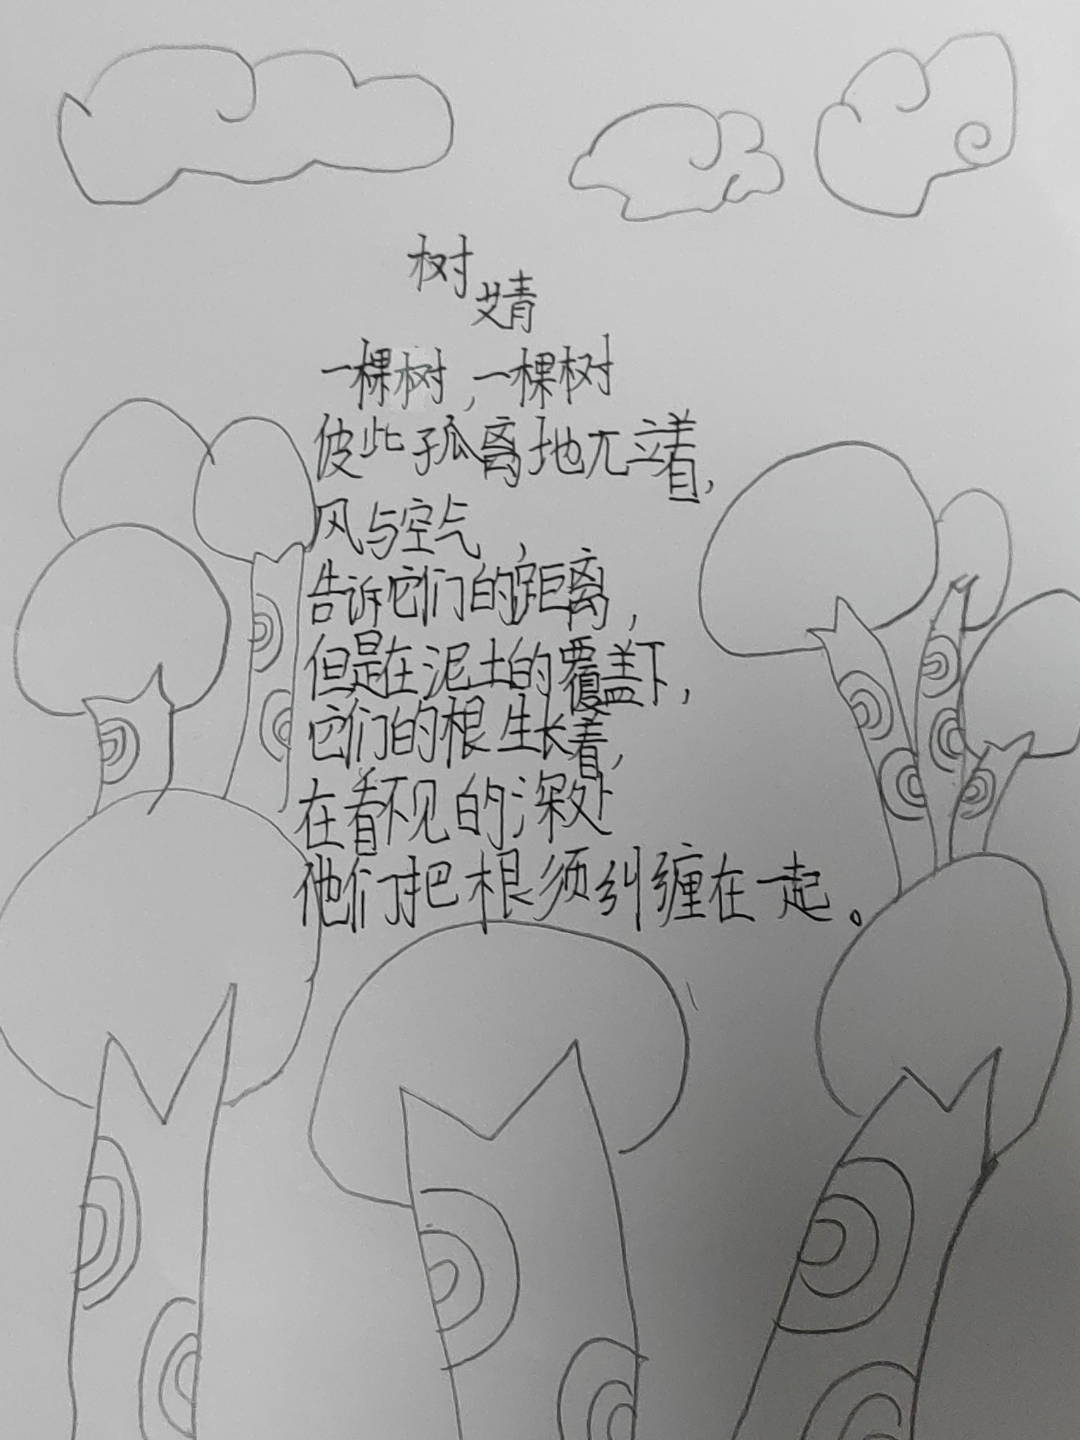 树
艾青
一棵树,一棵树
彼此孤离地兀立着,
风与空气,
告诉它们的距离,
但是在泥土的覆盖下,
它们的根生长着,
在看不见的深处
他们把根须纠缠在一起。